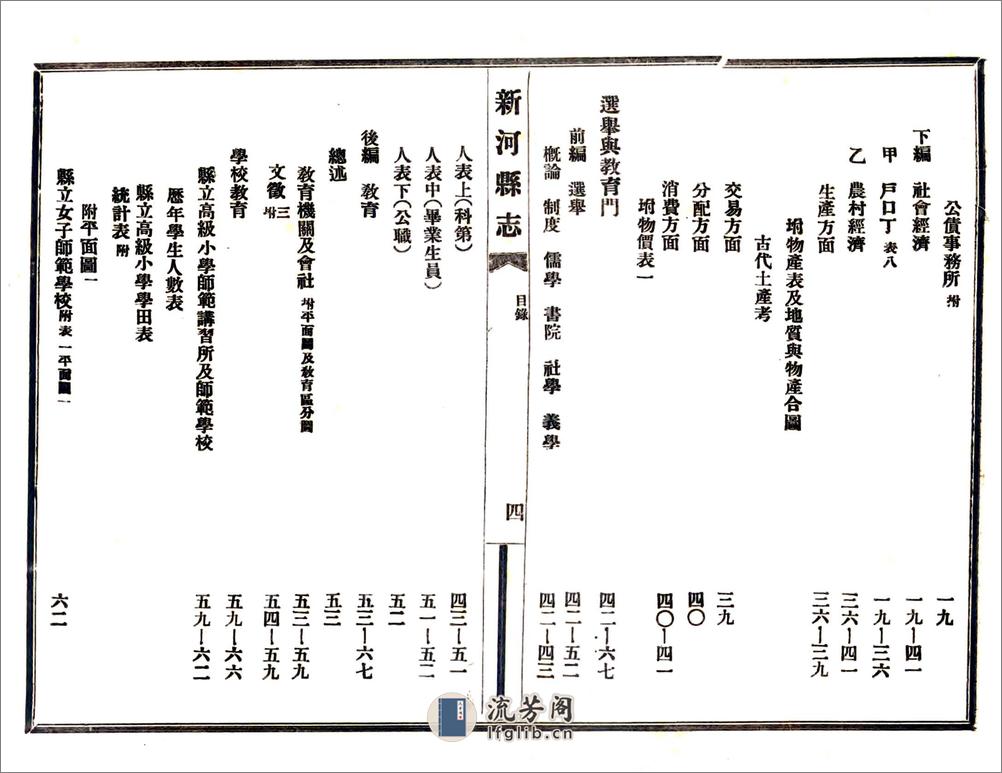 公債事務所 坿 一九
下編 社會經濟 一九—四一
甲 戶口丁 表八 一九—三六
乙 農村經濟 三六—四一
生產方面 三六—三九
坿物產表及地質與物產合圖
古代土產考
交易方面 三九
分配方面 四〇
消費方面 四〇—四一
坿物價表一
選舉與教育門 四二—六七
前編 選舉 四二—五二
概論 制度 儒學 書院 社學 義學 四二—四三
新河縣志 目錄 四
人表上(科第) 四三—五一
人表中(畢業生員) 五一—五二
人表下(公職) 五二
後編 教育 五三—六七
總述 五三
教育機關及會社 坿平面圖及教育區分圖 五三—五九
文徵 坿三 五四—五九
學校教育 五九—六六
縣立高級小學師範講習所及師範學校 五九—六二
歷年學生人數表
縣立高級小學學田表
統計表 附
附平面圖一
縣立女子師範學校 附表一平面圖一 六二
流芳阁
lfglib.cn